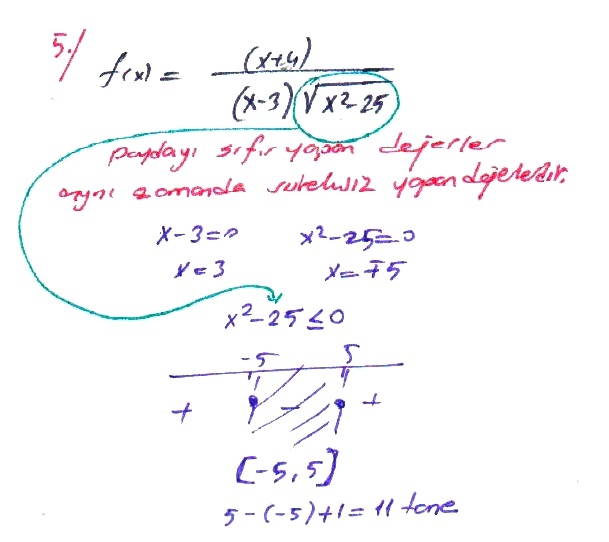 5./ f(x) = (x+4) / (x-3) √x²-25
paydayı sıfır yapan değerler
aynı zamanda süreksiz yapan değerlerdir.
x-3=0 x²-25=0
x=3 x=∓5
x²-25≤0
-5 5
+ - +
[-5,5]
5-(-5)+1=11 tane